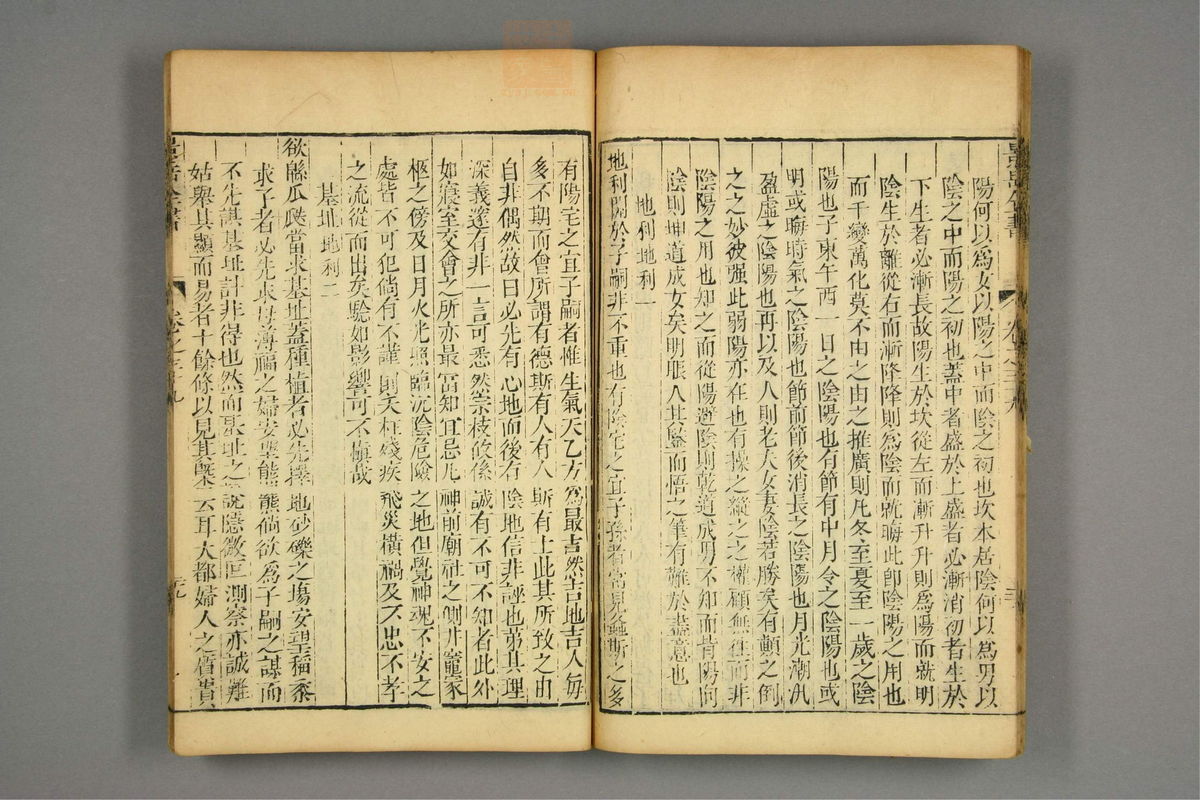 陽何以爲女以陽之中而陰之初也坎本居陰何以爲男以
陰之中而陽之初也蓋中者盛於上盛者必漸消初者生於
下生者必漸長故陽生於坎從左而漸升升則爲陽而就明
陰生於離從右而漸降降則爲陰而就晦此卽陰陽之用也
而千變萬化莫不由之由之推廣則凡冬至夏至一歲之陰
陽也子東午西一日之陰陽也有節有中月令之陰陽也或
明或晦時氣之陰陽也節前節後消長之陰陽也月光潮汛
盈虛之陰陽也再以及人則老夫女妻陰若勝矣有顛之倒
之之妙彼强此弱陽亦在也有操之縱之之權顧無往而非
陰陽之用也知之而從陽避陰則乾道成男不知而背陽向
陰則坤道成女矣明眼人其鑒而悟之筆有難於盡意也
地利地利一
地利關於子嗣非不重也有陰宅之宜子孫者常見螽斯之多
有陽宅之宜子嗣者惟生氣天乙方爲最吉然吉地吉人每
多不期而會所謂有德斯有人有人斯有土此其所致之由
自非偶然故曰必先有心地而後有陰地信非誣也第其理
深義邃有非一言可悉然宗枝攸係誠有不可不知者此外
如寢室交會之所亦最當知宜忌凡神前廟社之側井竈冢
柩之傍及日月火光照臨沉陰危險之地但覺神魂不安之
處皆不可犯倘有不謹則夭枉殘疾飛災橫禍及不忠不孝
之流從而出矣驗如影響可不愼哉
基址地利二
欲緜瓜瓞當求基址蓋種植者必先擇地砂礫之塲安望稲黍
求子者必先求母薄福之婦安望熊羆倘欲爲子嗣之謀而
不先謀基址計非得也然而基址之說隱微叵測察亦誠難
姑舉其顯而易者十餘條以見其槩云耳大都婦人之質貴